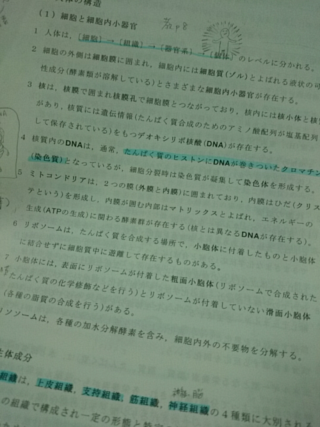 体の構造
(1) 細胞と細胞内小器官
1 人体は、[細胞]→[組織]→[器官系]→[個体]のレベルに分かれる。
2 細胞の外側は細胞膜に囲まれ、細胞内には細胞質(ゾル)とよばれる液状の可
性成分(酵素類が溶解している)とさまざまな細胞内小器官が存在する。
3 核は、核膜で囲まれ核膜孔で細胞膜とつながっており、核内には核小体と核
があり、核質には遺伝情報(たんぱく質合成のためのアミノ酸配列が塩基配列
して保存されている)をもつデオキシリボ核酸(DNA)が存在する。
4 核質内のDNAは、通常、たんぱく質のヒストンにDNAが巻きついたクロマチン
(染色質)となっているが、細胞分裂時は染色質が凝集して染色体を形成する。
5 ミトコンドリアは、2つの膜(外膜と内膜)に囲まれており、内膜はひだ(クリス
アという)を形成し、内膜が囲む内部はマトリックスとよばれ、エネルギーの
生成(ATPの生成)に関わる酵素類が存在する(核とは異なるDNAが存在する)。
6 リボソームは、たんぱく質を合成する場所で、小胞体に付着したものと小胞体
に結合せずに細胞質中に遊離して存在するものがある。
7 小胞体には、表面にリボソームが付着した粗面小胞体(リボソームで合成された
たんぱく質の化学修飾などを行う)とリボソームが付着していない滑面小胞体
(各種の脂質の合成を行う)がある。
リソソームは、各種の加水分解酵素を含み、細胞内外の不要物を分解する。
主体成分
組織は、上皮組織、支持組織、筋組織、神経組織の4種類に大別される
の組織で構成され一定の形態と